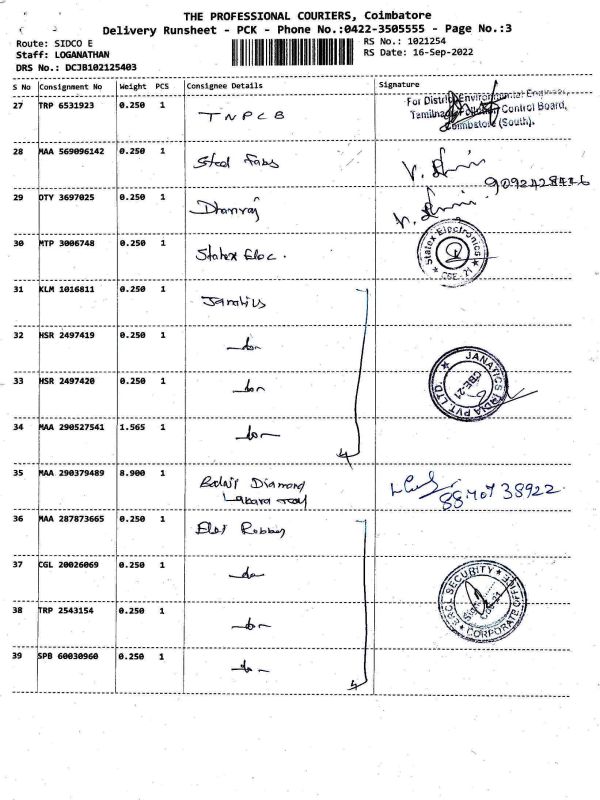 THE PROFESSIONAL COURIERS, Coimbatore
Delivery Runsheet - PCK - Phone No.:0422-3505555 - Page No.:3
Route: SIDCO E RS No.: 1021254
Staff: LOGANATHAN RS Date: 16-Sep-2022
DRS No.: DCJB102125403
S No Consignment No Weight PCS Consignee Details Signature
27 TRP 6531923 0.250 1 TNPCB
For District Environmental Engineer,
Tamilnadu Pollution Control Board,
Coimbatore (South).
28 MAA 569096142 0.250 1 Steel Fabs
29 OTY 3697025 0.250 1 Dhanraj
30 MTP 3006748 0.250 1 Statex Elec.
Statex Electronics
CBE - 21
31 KLM 1016811 0.250 1 Janatics
32 HSR 2497419 0.250 1 -do-
33 HSR 2497420 0.250 1 -do-
JANATICS INDIA PVT. LTD.
CBE-21
34 MAA 290527541 1.565 1 -do-
35 MAA 290379489 8.900 1 Balaji Diamond
88707 38922
36 MAA 287873665 0.250 1
37 CGL 20026069 0.250 1 -do-
SECURITY
CORPORATE OFFICE
38 TRP 2543154 0.250 1 -do-
39 SPB 60030960 0.250 1 -do-